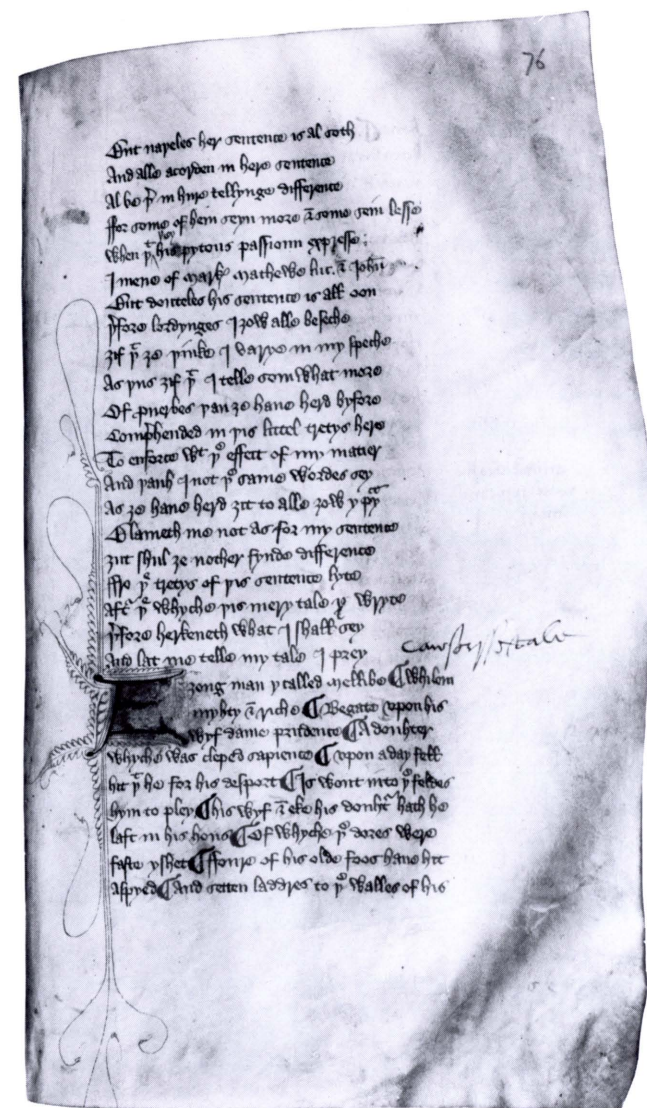 76
But naþeles her sentence is al soth
And alle acorden in here sentence
Al be þr̄ in hire tellynge difference
ffor some of hem seyn more & some sein lesse
When þt þey his pytous passioun expresse
I mene of Mark Mathewe luc. & Johñ
But douteles his sentence is all oon
þfore lordynges I ȝow alle beseche
ȝif þt ȝe þinke I varye in my speche
As þus ȝif þt I telle som what more
Of ꝓuerbes þan ȝe haue herd byfore
Comp̄hended in þis littel tretys here
To enforce wt þe effect of my matier
And þauh I not þe same wordes sey
As ȝe haue herd ȝit to alle ȝow I p̄y
Blameth me not as for my sentence
ȝit shul ȝe nother fynde difference
ffro þe tretys of þis sentence lyte
Aft̄ þe whyche þis mery tale I wryte
þfore herkeneth what I shall sey
And lat me telle my tale I prey
cawserys tale
A ȝong man y called Mellibe ¶ Whilom
myhty & riche ¶ Begate vpon his
wyf dame prudence ¶ A douhter
whyche was cleped sapience ¶ vpon a day fell
hit þt he for his desport ¶ Is went into þe feldes
hym to pley ¶ his wyf & eke his douht̄ hath he
laft in his hous ¶ Of whyche þe dores were
faste yshet ¶ ffoure of his olde foos haue hit
aspyed ¶ And setten laddres to þe walles of his